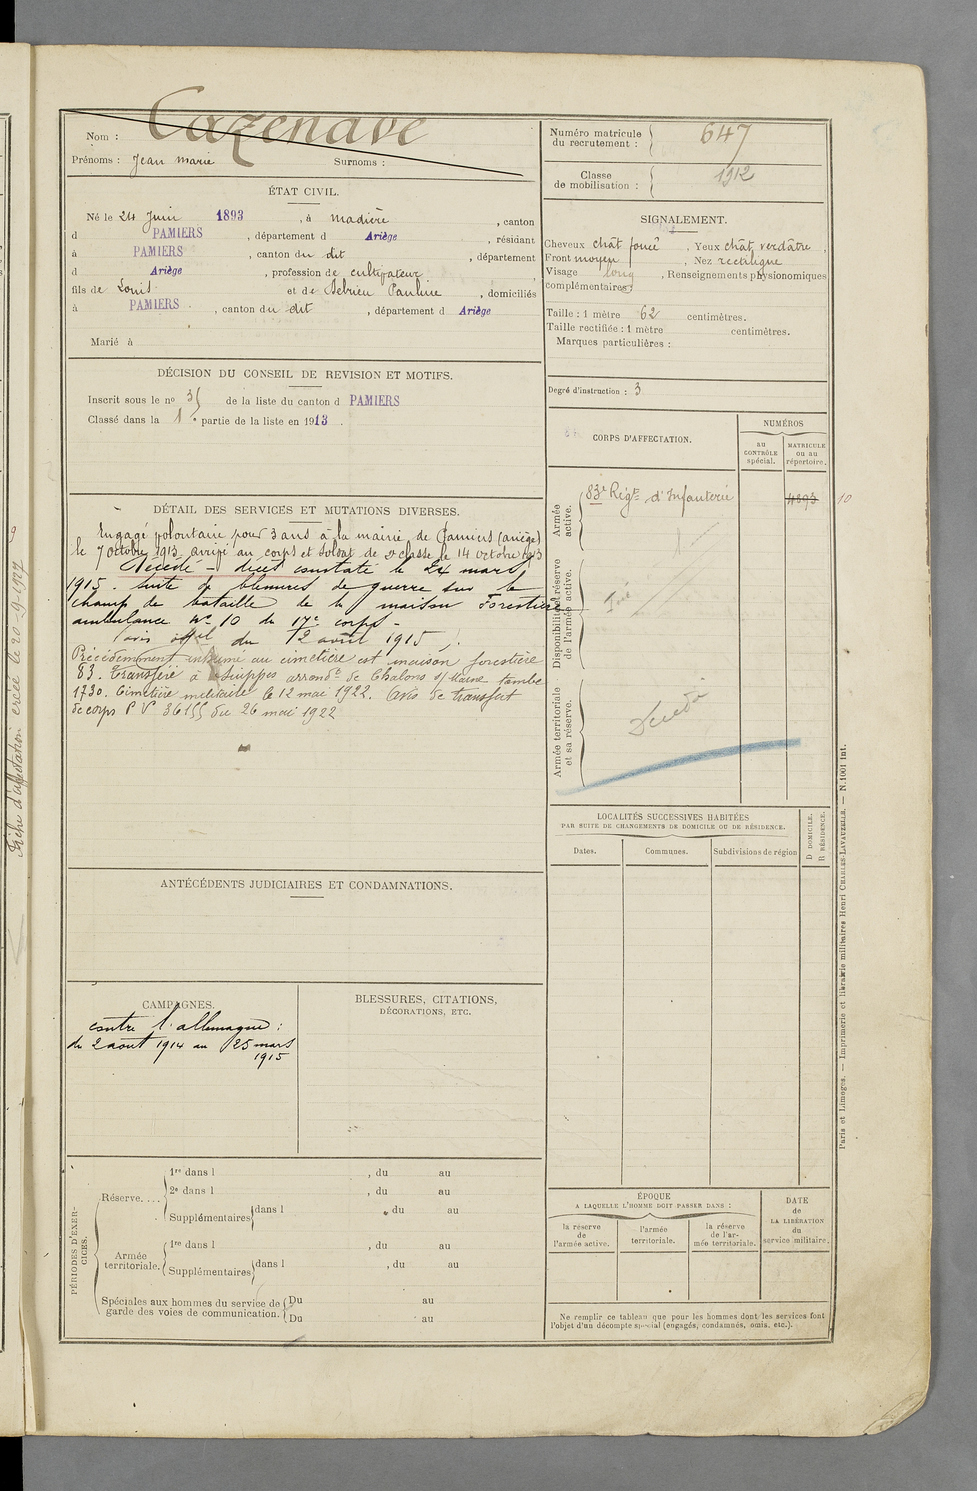 Nom : Cazenave
Prénoms : Jean Marie Surnoms :
ÉTAT CIVIL.
Né le 24 Juin 1893, à Madière, canton
d PAMIERS, département d Ariège, résidant
à PAMIERS, canton du dit, département
d Ariège, profession de cultivateur
fils de Louis et de Pauline, domiciliés
à PAMIERS, canton du dit, département d Ariège
Marié à
DÉCISION DU CONSEIL DE REVISION ET MOTIFS.
Inscrit sous le no 35 de la liste du canton d PAMIERS
Classé dans la 1e partie de la liste en 1913.
DÉTAIL DES SERVICES ET MUTATIONS DIVERSES.
Engagé volontaire pour 3 ans à la mairie de Pamiers (ariège)
le 7 octobre 1913. arrivé au corps et soldat de 2e classe le 14 octobre 1913
Décédé - décès constaté le 24 mars
1915. Suite de blessures de guerre sur le
champ de bataille de la maison Forestière
ambulance No 10 du 17e corps -
avis offel du 12 avril 1915.
Précédemment inhumé au cimetière est maison forestière
83. Transféré à Suippes arrondt de Chalons s/Marne tombe
1730. Cimetière militaire le 12 mai 1922. Avis de transfert
de corps P V 36155 du 26 mai 1922
ANTÉCÉDENTS JUDICIAIRES ET CONDAMNATIONS.
CAMPAGNES.
contre l'allemagne :
du 2 août 1914 au 25 mars
1915
BLESSURES, CITATIONS,
DÉCORATIONS, ETC.
PÉRIODES D'EXERCICES.
Réserve....
1re dans l , du au
2e dans l , du au
Supplémentaires dans l , du au
Armée territoriale.
1re dans l , du au
Supplémentaires dans l , du au
Spéciales aux hommes du service de garde des voies de communication.
Du au
Du au
Numéro matricule
du recrutement : 647
Classe
de mobilisation : 1912
SIGNALEMENT.
Cheveux chât foncé, Yeux chât verdâtre,
Front moyen, Nez rectiligne
Visage long, Renseignements physionomiques
complémentaires :
Taille : 1 mètre 62 centimètres.
Taille rectifiée : 1 mètre centimètres.
Marques particulières :
Degré d'instruction : 3
CORPS D'AFFECTATION.
NUMÉROS
au
CONTRÔLE
spécial.
MATRICULE
ou au
répertoire.
Armée active.
83e Régt d'Infanterie 4893 10
Disponibilité et réserve de l'armée active.
Armée territoriale et sa réserve.
LOCALITÉS SUCCESSIVES HABITÉES
PAR SUITE DE CHANGEMENTS DE DOMICILE OU DE RÉSIDENCE.
Dates. Communes. Subdivisions de région
D DOMICILE.
R RÉSIDENCE.
ÉPOQUE
A LAQUELLE L'HOMME DOIT PASSER DANS :
la réserve
de
l'armée active.
l'armée
territoriale.
la réserve
de l'armée territoriale.
DATE
de
LA LIBÉRATION
du
service militaire.
Ne remplir ce tableau que pour les hommes dont les services font
l'objet d'un décompte spécial (engagés, condamnés, omis, etc.).
Paris et Limoges. — Imprimerie et librairie militaires Henri CHARLES-LAVAUZELLE. — N. 1001 int.
Fiche d'affectation créée le 20-9-1927